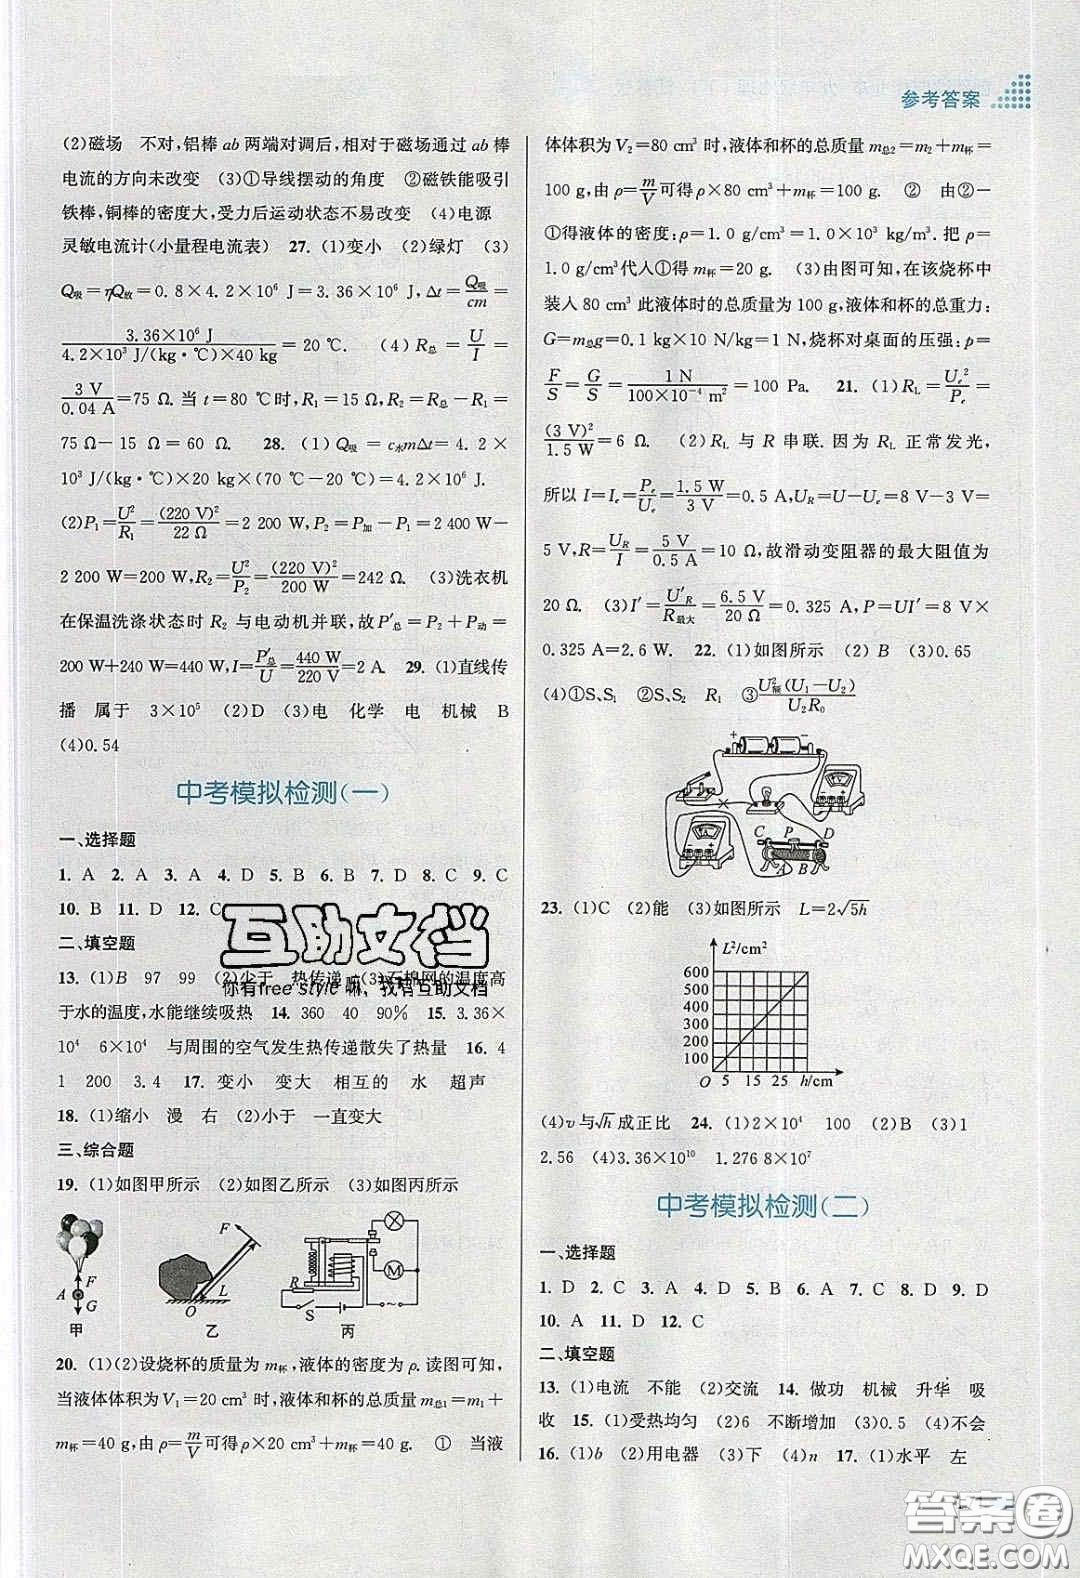 参考答案
(2)磁场　不对,铝棒 ab 两端对调后,相对于磁场通过 ab 棒
电流的方向未改变　(3)①导线摆动的角度　②磁铁能吸引
铁棒,铜棒的密度大,受力后运动状态不易改变　(4)电源
灵敏电流计(小量程电流表)　27. (1)变小　(2)绿灯　(3)
Q吸=ηQ放=0.8×4.2×10⁶ J=3.36×10⁶ J,Δt=Q吸/cm=
3.36×10⁶ J/(4.2×10³ J/(kg·℃)×40 kg)=20 ℃.　(4)R总=U/I=
3 V/0.04 A=75 Ω.当 t=80 ℃时,R₁=15 Ω,R₂=R总-R₁=
75 Ω-15 Ω=60 Ω.　28. (1)Q吸=c水mΔt=4.2×
10³ J/(kg·℃)×20 kg×(70 ℃-20 ℃)=4.2×10⁶ J.
(2)P₁=U²/R₁=(220 V)²/22 Ω=2 200 W,P₂=P加-P₁=2 400 W-
2 200 W=200 W,R₂=U²/P₂=(220 V)²/200 W=242 Ω.　(3)洗衣机
在保温洗涤状态时 R₂ 与电动机并联,故 P′总=P₂+P动=
200 W+240 W=440 W,I=P′总/U=440 W/220 V=2 A.　29. (1)直线传
播　属于　3×10⁵　(2)D　(3)电　化学　电　机械　B
(4)0.54
中考模拟检测(一)
一、选择题
1. A　2. A　3. A　4. D　5. D　6. B　7. D　8. C　9. C
10. B　11. D　12. C
二、填空题
13. (1)B　97　99　(2)少于　热传递　(3)石棉网的温度高
于水的温度,水能继续吸热　14. 360　40　90%　15. 3.36×
10⁴　6×10⁴　与周围的空气发生热传递散失了热量　16. 4
1　200　3.4　17. 变小　变大　相互的　水　超声
18. (1)缩小　漫　右　(2)小于　一直变大
三、综合题
19. (1)如图甲所示　(2)如图乙所示　(3)如图丙所示
F
A
G
甲
F
L
O
乙
R
S
M
丙
20. (1)(2)设烧杯的质量为 m杯,液体的密度为 ρ.读图可知,
当液体体积为 V₁=20 cm³ 时,液体和杯的总质量 m总1=m₁+
m杯=40 g,由 ρ=m/V可得 ρ×20 cm³+m杯=40 g.　①　当液
体体积为 V₂=80 cm³ 时,液体和杯的总质量 m总2=m₂+m杯=
100 g,由 ρ=m/V可得 ρ×80 cm³+m杯=100 g.　②　由②-
①得液体的密度:ρ=1.0 g/cm³=1.0×10³ kg/m³.把 ρ=
1.0 g/cm³代人①得 m杯=20 g.　(3)由图可知,在该烧杯中
装人 80 cm³ 此液体时的总质量为 100 g,液体和杯的总重力:
G=m总g=0.1 kg×10 N/kg=1 N,烧杯对桌面的压强:p=
F/S=G/S=1 N/(100×10⁻⁴ m²)=100 Pa.　21. (1)R_L=Uₑ²/Pₑ=
(3 V)²/1.5 W=6 Ω.　(2)R_L 与 R 串联.因为 R_L 正常发光,
所以 I=Iₑ=Pₑ/Uₑ=1.5 W/3 V=0.5 A,U_R=U-Uₑ=8 V-3 V=
5 V,R=U_R/I=5 V/0.5 A=10 Ω,故滑动变阻器的最大阻值为
20 Ω.　(3)I′=U′_R/R最大=6.5 V/20 Ω=0.325 A,P=UI′=8 V×
0.325 A=2.6 W.　22. (1)如图所示　(2)B　(3)0.65
(4)①S、S₁　②S、S₂　R₁　③U²额(U₁-U₂)/U₂R₀
+
-
V
A
C
P
D
A
B
23. (1)C　(2)能　(3)如图所示　L=2√5h
L²/cm²
600
500
400
300
200
100
O　5　15　25　h/cm
(4)v 与√h成正比　24. (1)2×10⁴　100　(2)B　(3)1
2.56　(4)3.36×10¹⁰　1.276 8×10⁷
中考模拟检测(二)
一、选择题
1. D　2. C　3. A　4. D　5. B　6. A　7. C　8. D　9. D
10. A　11. D　12. C
二、填空题
13. (1)电流　不能　(2)交流　14. 做功　机械　升华　吸
收　15. (1)受热均匀　(2)6　不断增加　(3)0.5　(4)不会
16. (1)b　(2)用电器　(3)下　(4)n　17. (1)水平　左
互助文档
你有free style 嘛，我有互助文档
答案圈
MXQE.COM